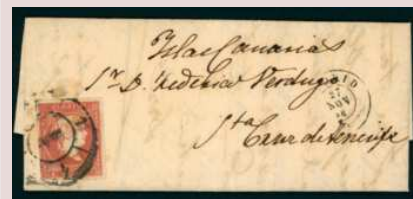 Islas Canarias
Sr. D. Federico Verdugo
Sta Cruz de Tenerife
27
NOV